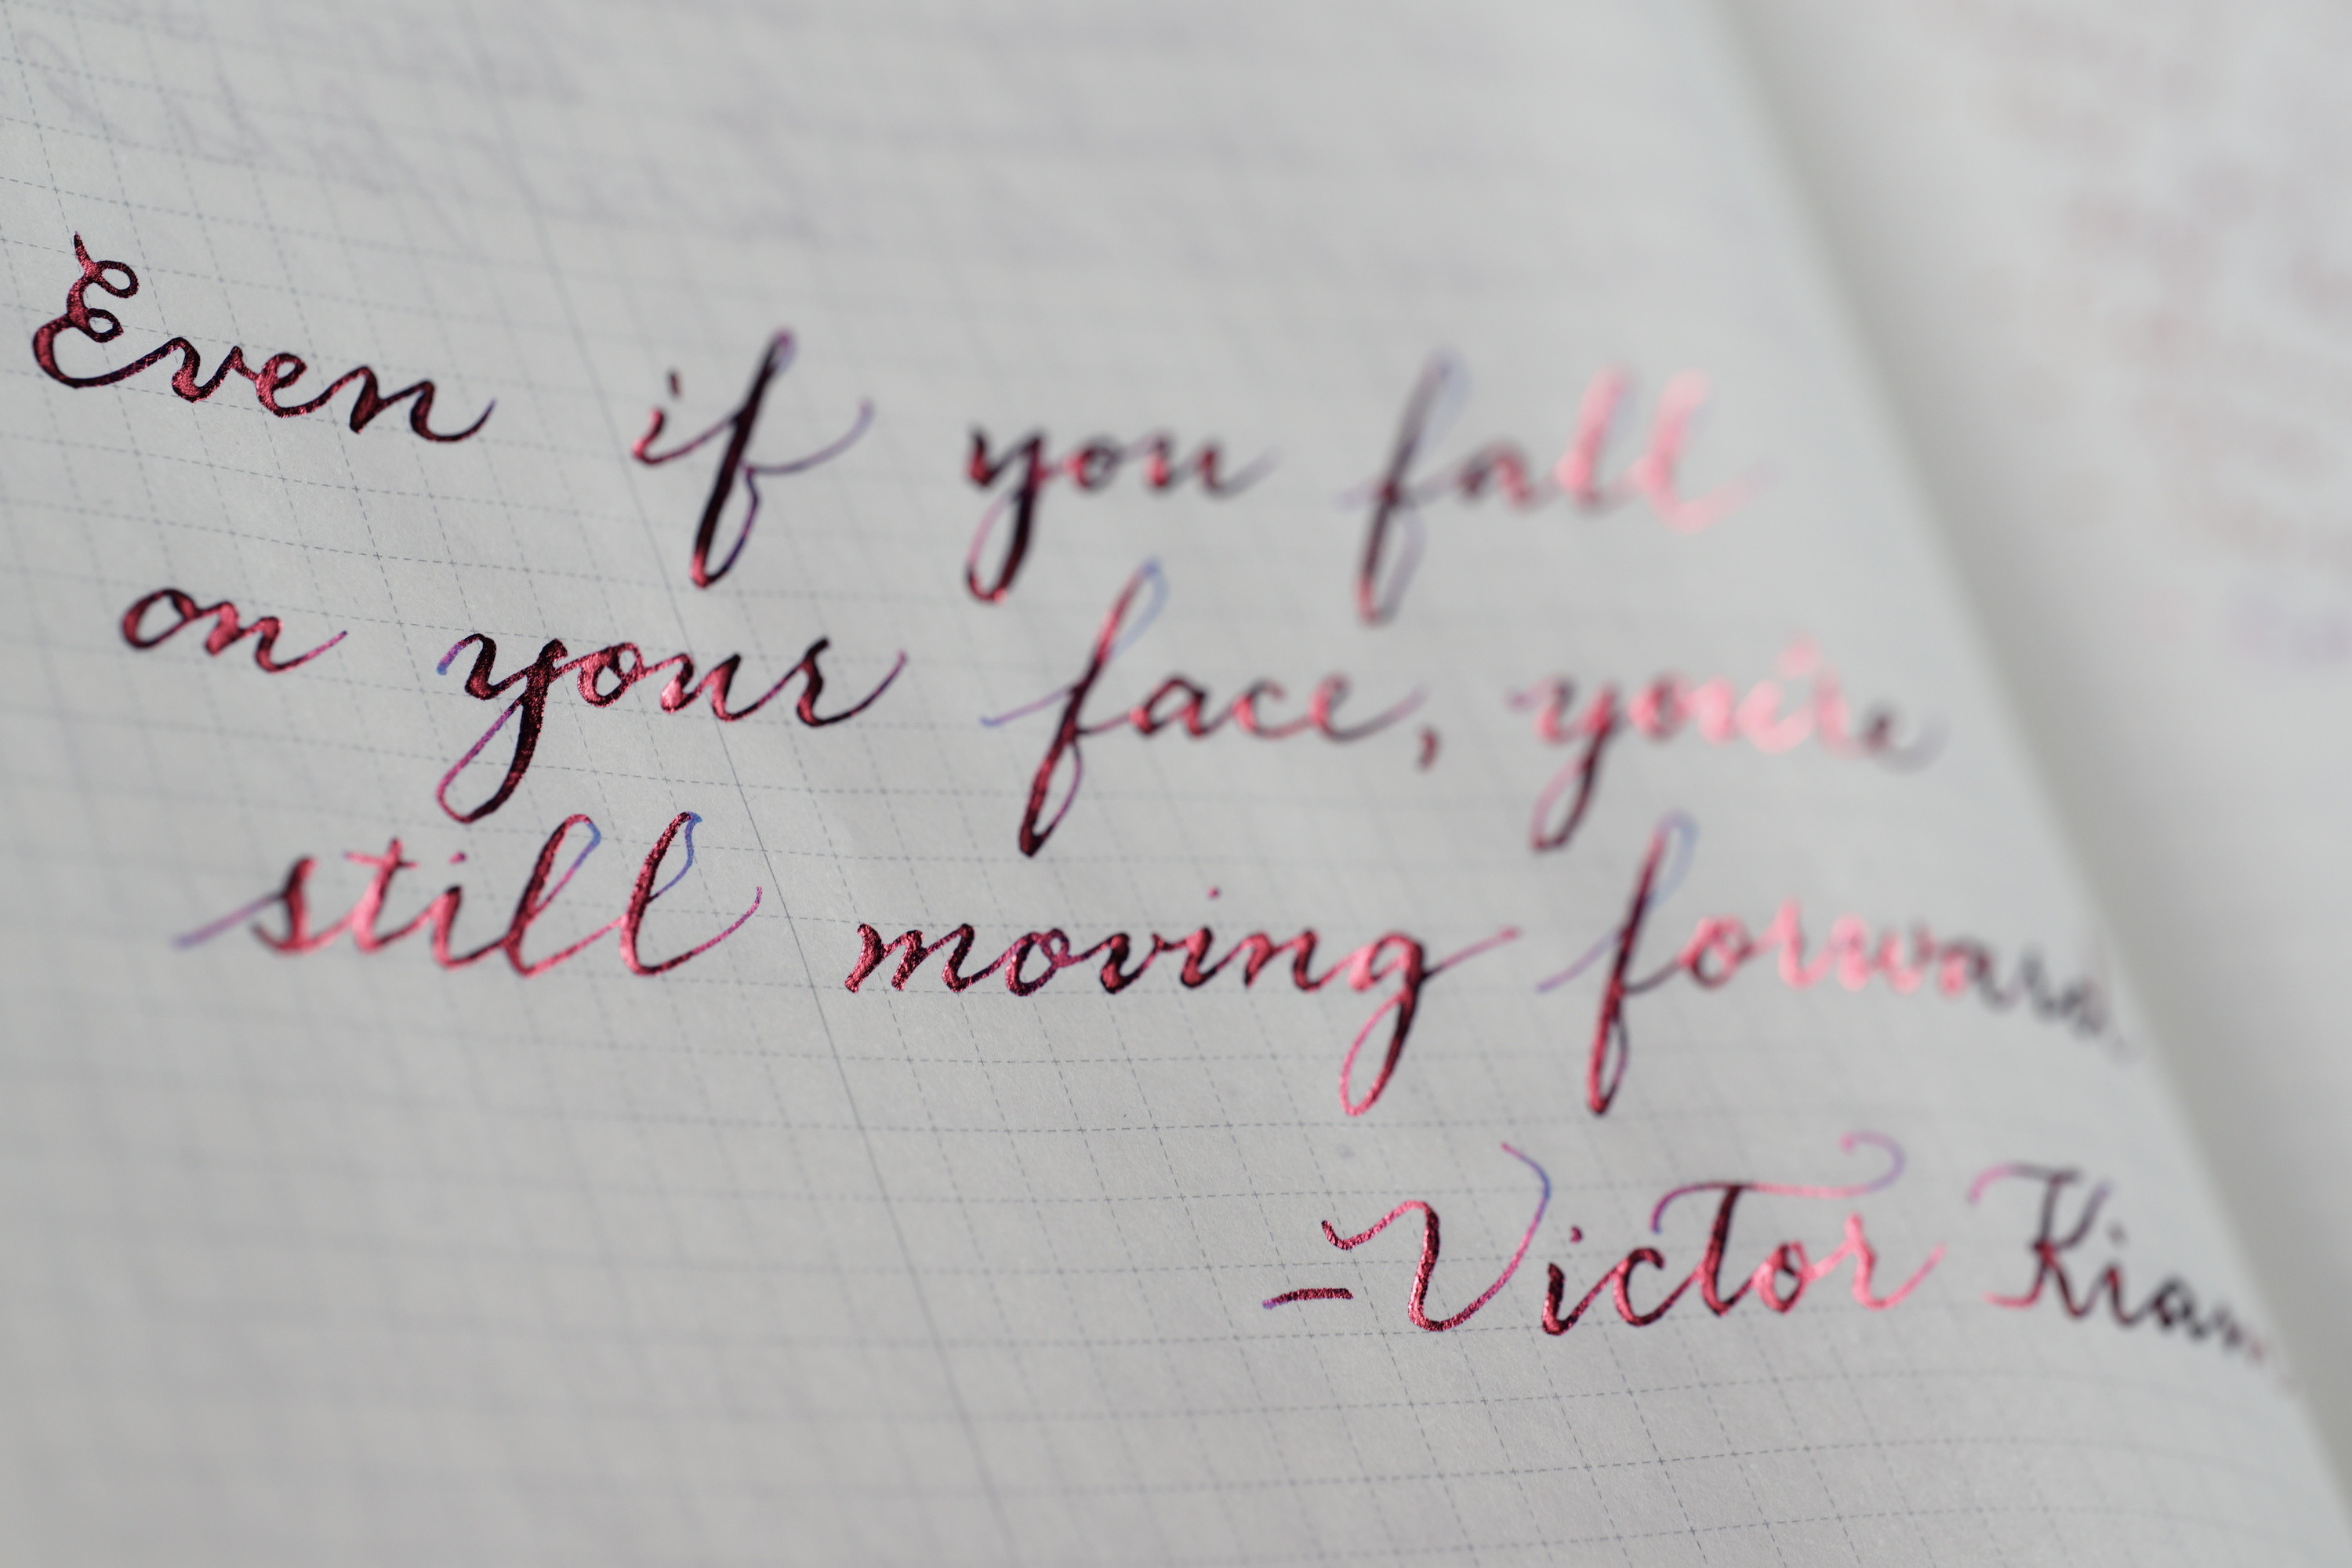 Even if you fall
on your face, you're
still moving forward.
-Victor Kiam